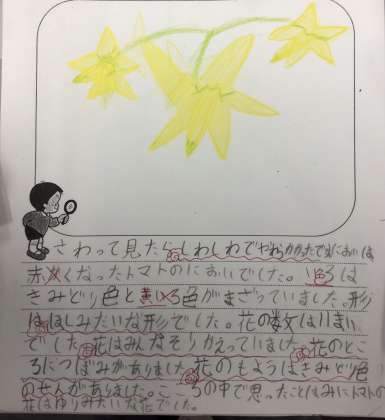 さわって見たらしわしわでやわらかかったですにおいは
赤くなったトマトのにおいでした。色は
きみどり色と黄いろ色がまざっていました。形
はほしみたいな形でした。花の数は11まい
でした。花はみんなそりかえっていました。花のとこ
ろにつぼみがありました。花のもようはきみどり色
のせんがありました。こころの中で思ったことはみにトマトの
花はゆりみたいな花でした。